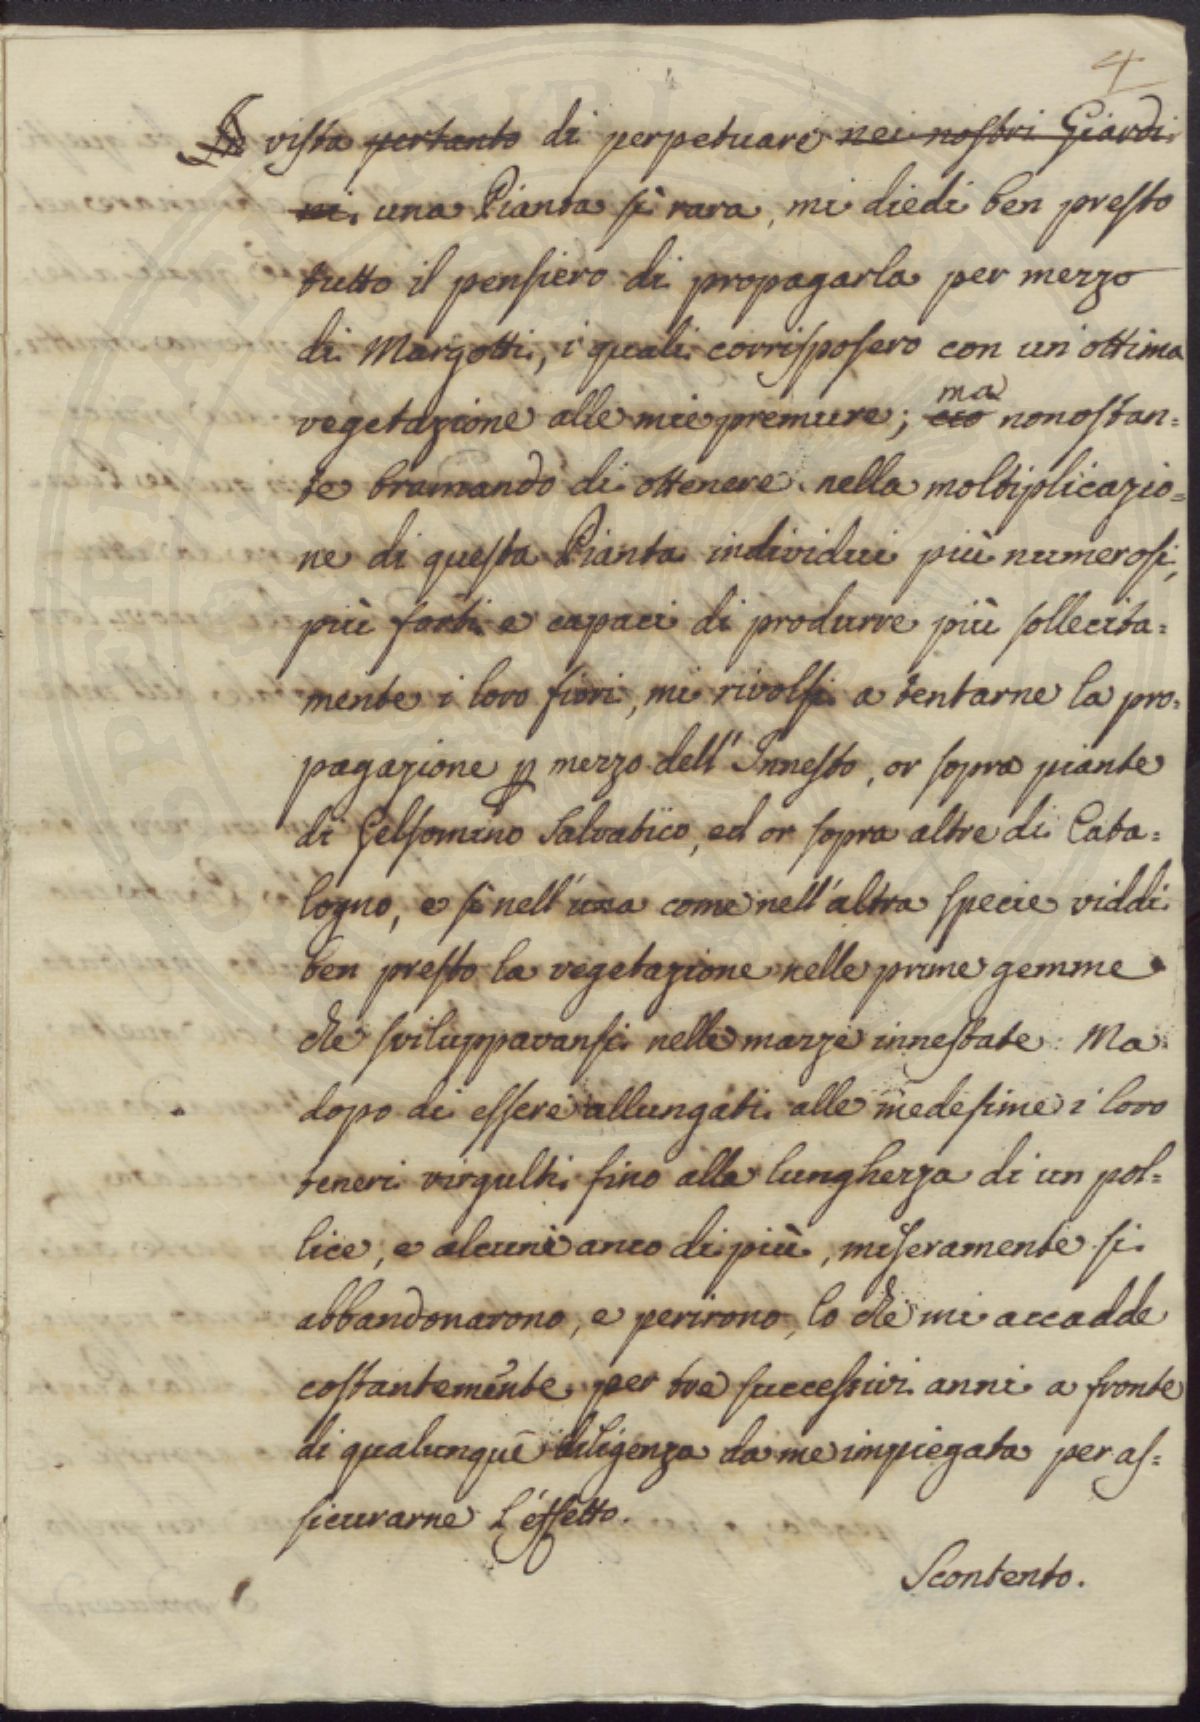 4
A vista pertanto di perpetuare nei nostri Giardi-
ni. una Pianta sì rara, mi diedi ben presto
tutto il pensiero di propagarla per mezzo
di Margotti, i quali corrisposero con un'ottima
ma
vegetazione alle mie premure; ciò nonostan=
te bramando di ottenere nella moltiplicazio=
ne di questa Pianta individui più numerosi,
più forti e capaci di produrre più sollecita=
mente i loro fiori, mi rivolsi a tentarne la pro=
pagazione p mezzo dell'Innesto, or sopra piante
di Gelsomino Salvatico, ed or sopra altre di Cata=
logno, e sì nell'una come nell'altra specie viddi
ben presto la vegetazione nelle prime gemme
che sviluppavansi nelle marze innestate: Ma
dopo di essere allungati alle medesime i loro
teneri virgulti fino alla lunghezza di un pol=
lice, e alcuni anco di più, miseramente si
abbandonarono, e perirono, lo che mi accadde
costantemente per tre successivi anni a fronte
di qualunque diligenza da me impiegata per as=
sicurarne l'effetto.
Scontento.